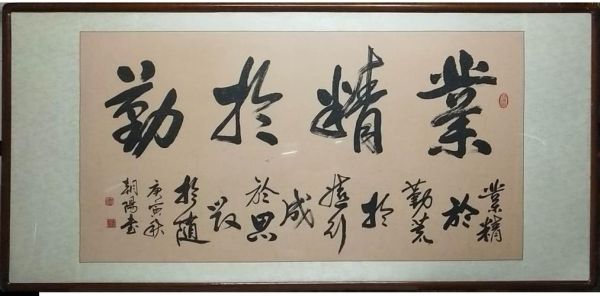 業精於勤
業精
於
勤荒
於
嬉行
成
於思
毀
於随
庚寅秋
朝陽書